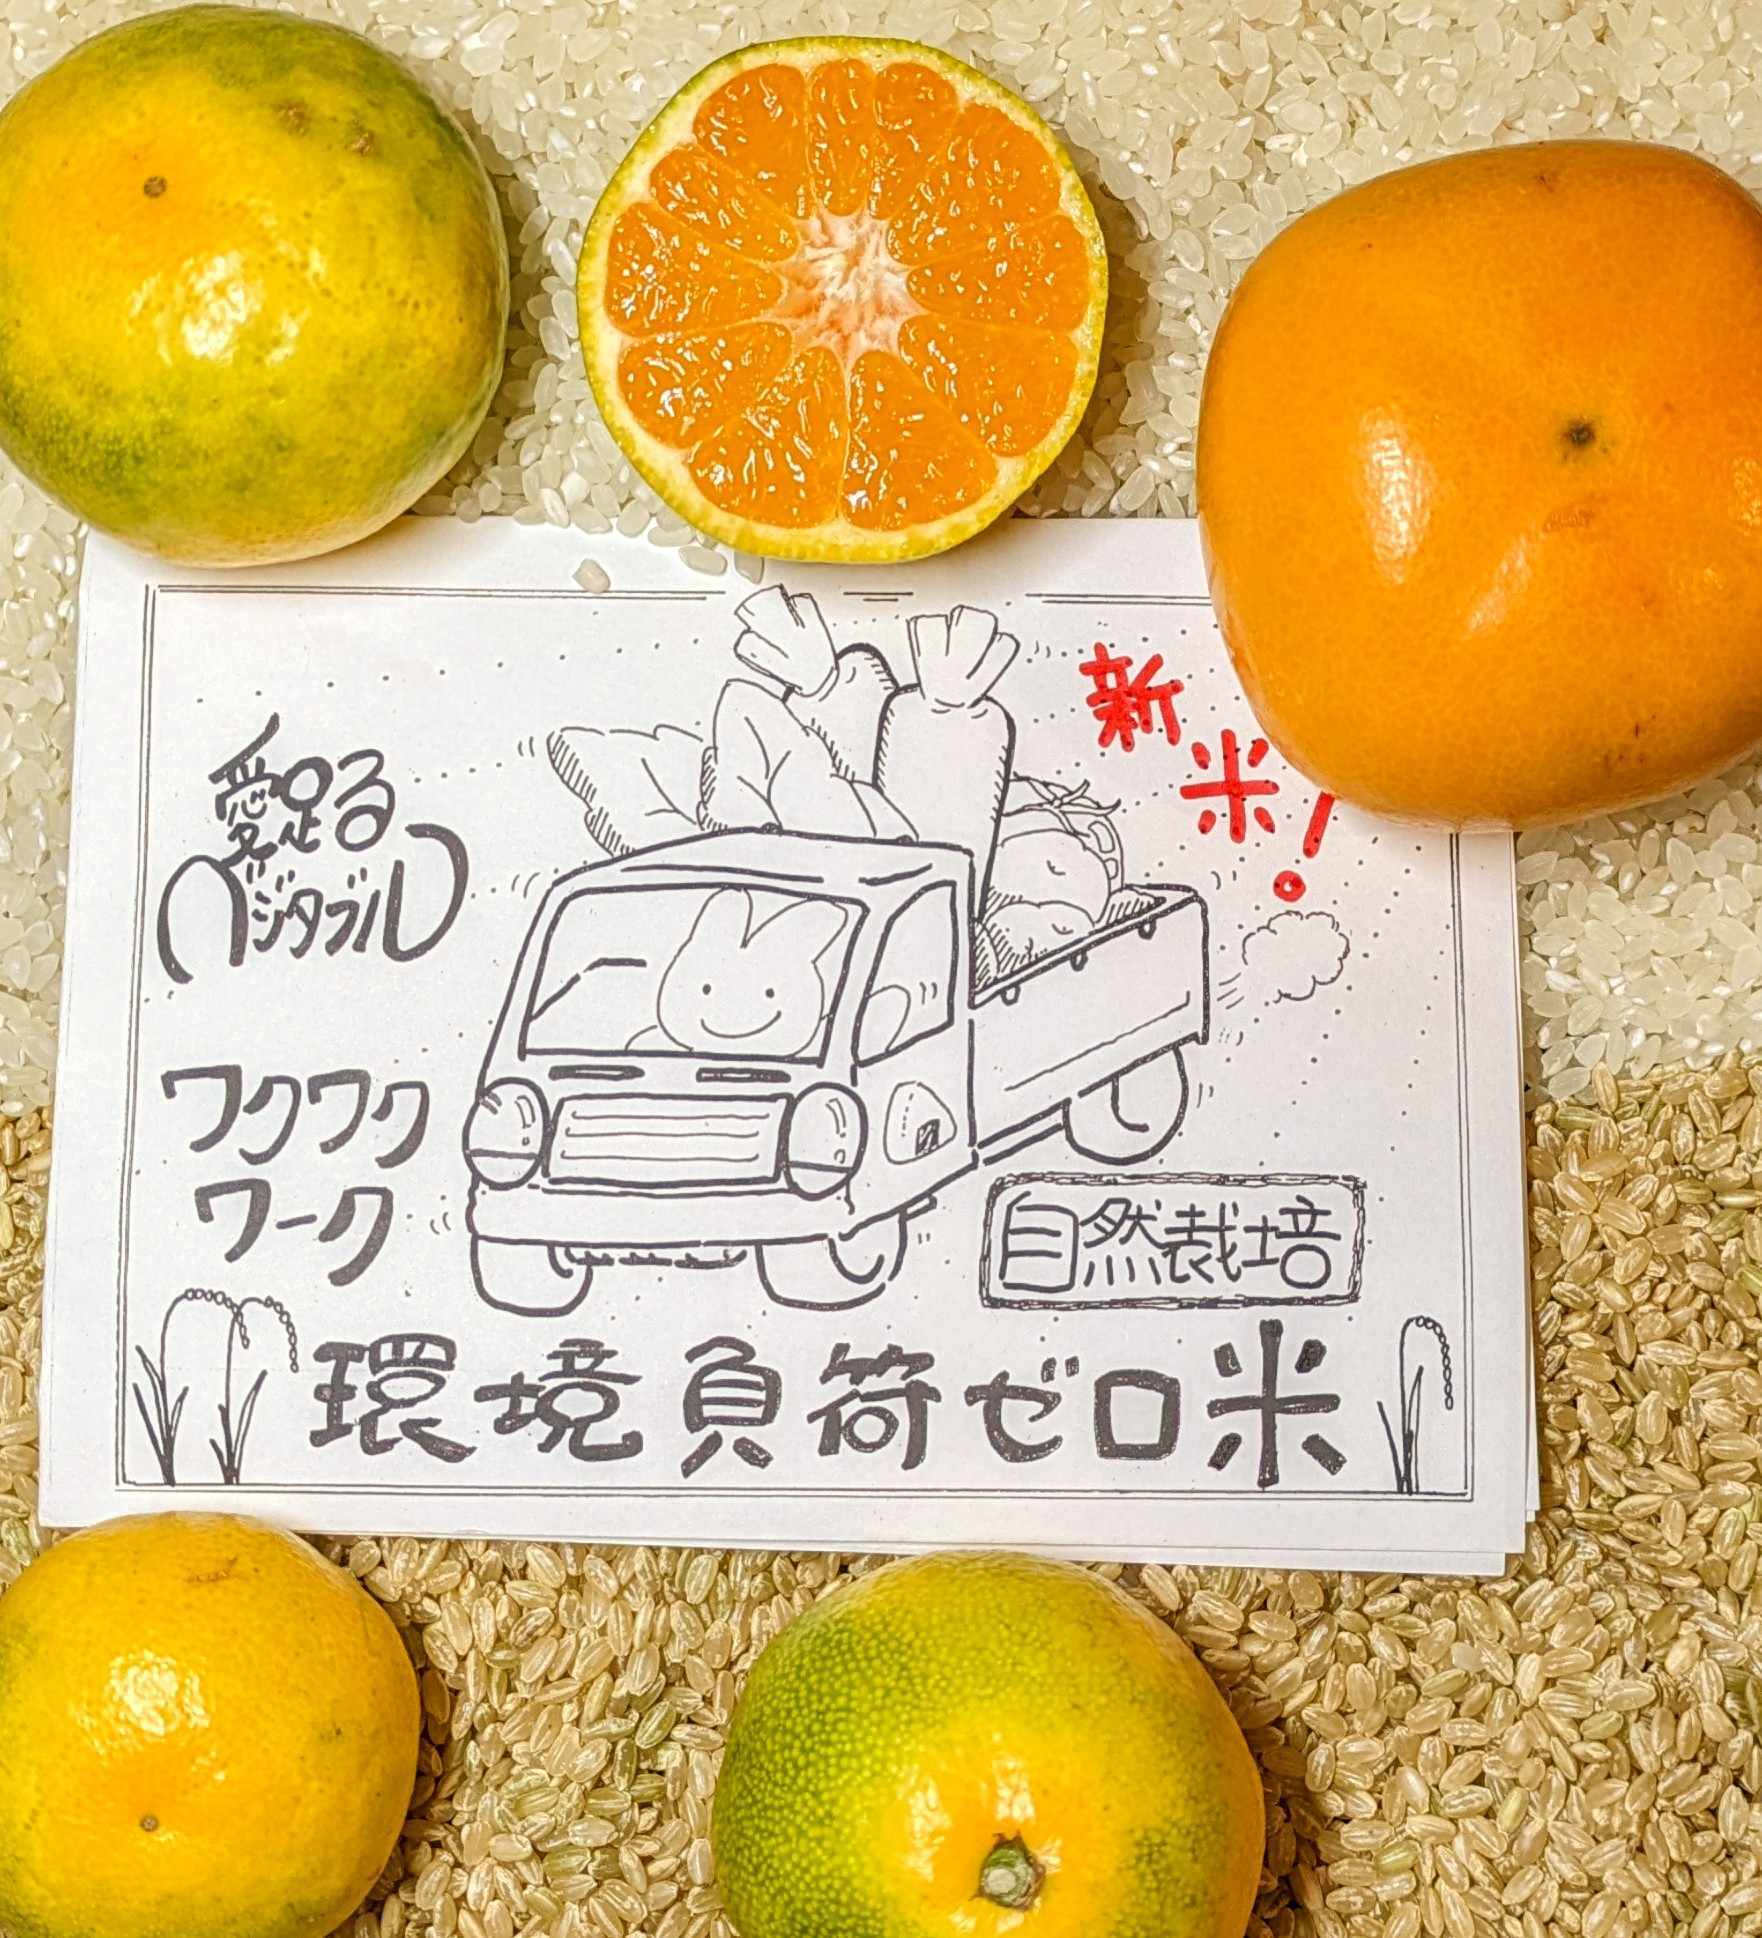 新米!
愛足る
ベジタブル
ワクワク
ワーク
自然栽培
環境負荷ゼロ米